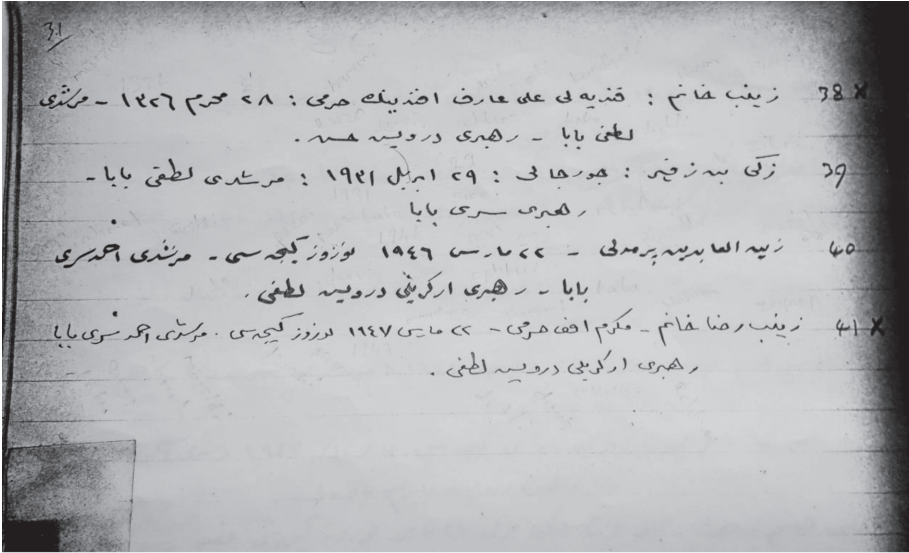 31
38 x زينب خانم : قنديه لى على عارف افندينك حرمى : ٢٨ محرم ١٣٢٦ - مرشدى
لطفى بابا - رهبرى درويش حسن .
39 زكى بن زفير : جورجالى : ٢٩ ابريل ١٩٣١ : مرشدى لطفى بابا -
رهبرى سرى بابا
40 زين العابدين پرمدلى - ٢٢ مارس ١٩٤٦ نوروز كيجه سى - مرشدى احمد سرى
بابا - رهبرى اركريلى درويش لطفى .
41 x زينب رضا خانم - مكرم حرمى - ٢٢ مارس ١٩٤٧ نوروز كيجه سى . مرشدى احمد سرى بابا
رهبرى اركريلى درويش لطفى .